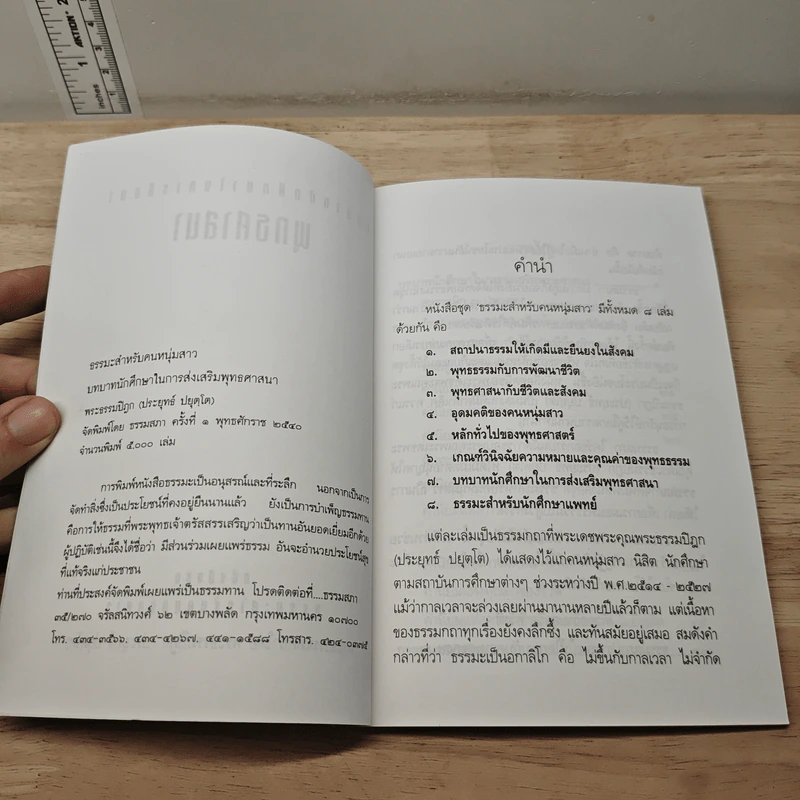 ธรรมะสำหรับคนหนุ่มสาว
บทบาทนักศึกษาในการส่งเสริมพุทธศาสนา
พระธรรมปิฎก (ประยุทธ์ ปยุตฺโต)
จัดพิมพ์โดย ธรรมสภา ครั้งที่ ๑ พุทธศักราช ๒๕๔๐
จำนวนพิมพ์ ๕,๐๐๐ เล่ม
การพิมพ์หนังสือธรรมะเป็นอนุสรณ์และที่ระลึก นอกจากเป็นการ
จัดทำสิ่งซึ่งเป็นประโยชน์ที่คงอยู่ยืนนานแล้ว ยังเป็นการบำเพ็ญธรรมทาน
คือการให้ธรรมที่พระพุทธเจ้าตรัสสรรเสริญว่าเป็นทานอันยอดเยี่ยมอีกด้วย
ผู้ปฏิบัติเช่นนี้จึงได้ชื่อว่า มีส่วนร่วมเผยแพร่ธรรม อันจะอำนวยประโยชน์สุข
ที่แท้จริงแก่ประชาชน
ท่านที่ประสงค์จัดพิมพ์เผยแพร่เป็นธรรมทาน โปรดติดต่อที่....ธรรมสภา
๓๕/๒๗๐ จรัลสนิทวงศ์ ๖๒ เขตบางพลัด กรุงเทพมหานคร ๑๐๗๐๐
โทร. ๔๓๔-๓๕๖๖, ๔๓๔-๔๒๖๗, ๔๔๑-๑๕๘๘ โทรสาร. ๔๒๔-๐๓๗๕
คำนำ
หนังสือชุด 'ธรรมะสำหรับคนหนุ่มสาว' มีทั้งหมด ๘ เล่ม
ด้วยกัน คือ
๑. สถาปนาธรรมให้เกิดมีและยืนยงในสังคม
๒. พุทธธรรมกับการพัฒนาชีวิต
๓. พุทธศาสนากับชีวิตและสังคม
๔. อุดมคติของคนหนุ่มสาว
๕. หลักทั่วไปของพุทธศาสตร์
๖. เกณฑ์วินิจฉัยความหมายและคุณค่าของพุทธธรรม
๗. บทบาทนักศึกษาในการส่งเสริมพุทธศาสนา
๘. ธรรมะสำหรับนักศึกษาแพทย์
แต่ละเล่มเป็นธรรมกถาที่พระเดชพระคุณพระธรรมปิฎก
(ประยุทธ์ ปยุตฺโต) ได้แสดงไว้แก่คนหนุ่มสาว นิสิต นักศึกษา
ตามสถาบันการศึกษาต่างๆ ช่วงระหว่างปี พ.ศ.๒๕๑๔ - ๒๕๒๗
แม้ว่ากาลเวลาจะล่วงเลยผ่านมานานหลายปีแล้วก็ตาม แต่เนื้อหา
ของธรรมกถาทุกเรื่องยังคงลึกซึ้ง และทันสมัยอยู่เสมอ สมดังคำ
กล่าวที่ว่า ธรรมะเป็นอกาลิโก คือ ไม่ขึ้นกับกาลเวลา ไม่จำกัด